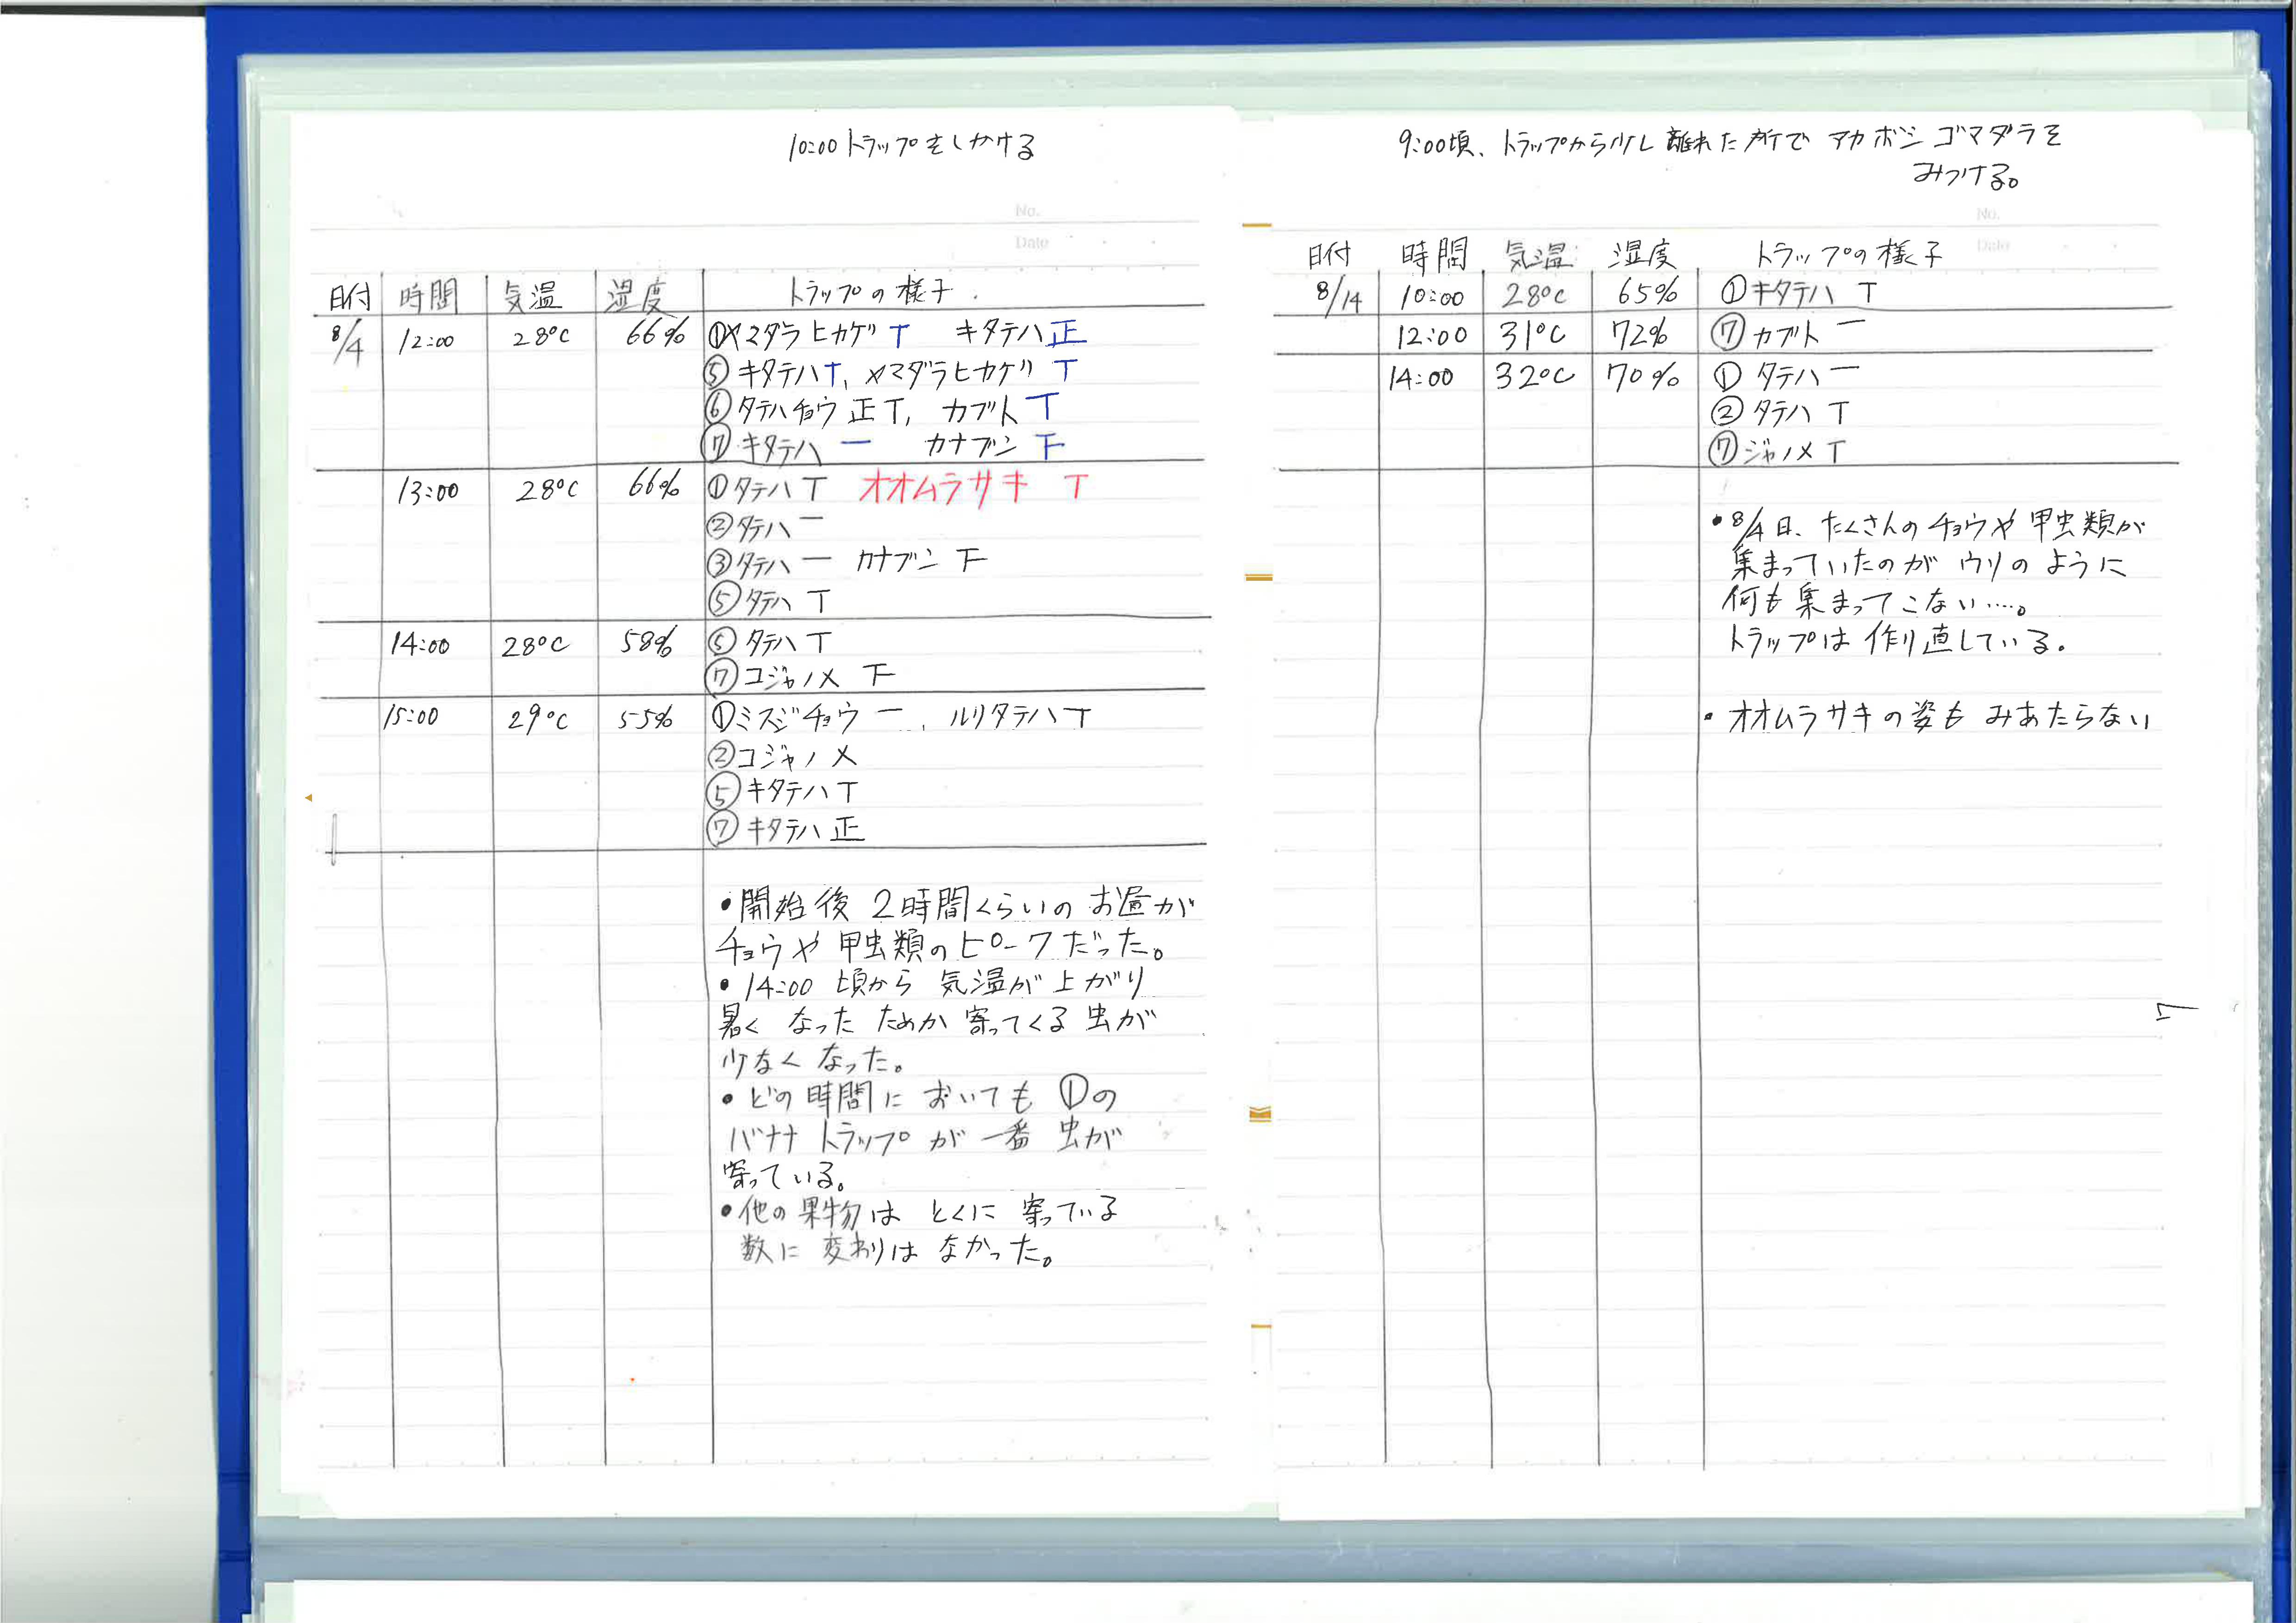 10:00 トラップをしかける
No.
Date
日付 時間 気温 湿度 トラップの様子
8/4 12:00 28℃ 66% ①ヤマダラヒカゲ T キタテハ 正
⑤ キタテハ T、ヤマダラヒカゲ T
⑥ タテハチョウ 正 T, カブト T
⑦ キタテハ 一 カナブン 下
13:00 28℃ 66% ① タテハ T オオムラサキ T
② タテハ 一
③ タテハ 一 カナブン 下
⑤ タテハ T
14:00 28℃ 58% ⑤ タテハ T
⑦ コジャノメ 下
15:00 29℃ 55% ① ミスジチョウ 一、ルリタテハ T
② コジャノメ
⑤ キタテハ T
⑦ キタテハ 正
• 開始後 2時間くらいの お昼が
チョウや 甲虫類のピークだった。
• 14:00 頃から 気温が 上がり
暑く なった ためか 寄ってくる 虫が
少なく なった。
• どの時間に おいても ①の
バナナ トラップが 一番 虫が
寄っている。
• 他の果物は とくに 寄っている
数に 変わりは なかった。
9:00頃、トラップから少し離れた所で アカボシゴマダラを
みつける。
No.
Date
日付 時間 気温 湿度 トラップの様子
8/14 10:00 28℃ 65% ① キタテハ T
12:00 31℃ 72% ⑦ カブト 一
14:00 32℃ 70% ① タテハ 一
② タテハ T
⑦ ジャノメ T
• 8/4日、たくさんの チョウや 甲虫類が
集まっていたのが ウソのように
何も 集まってこない……。
トラップは 作り直している。
• オオムラサキの姿も みあたらない